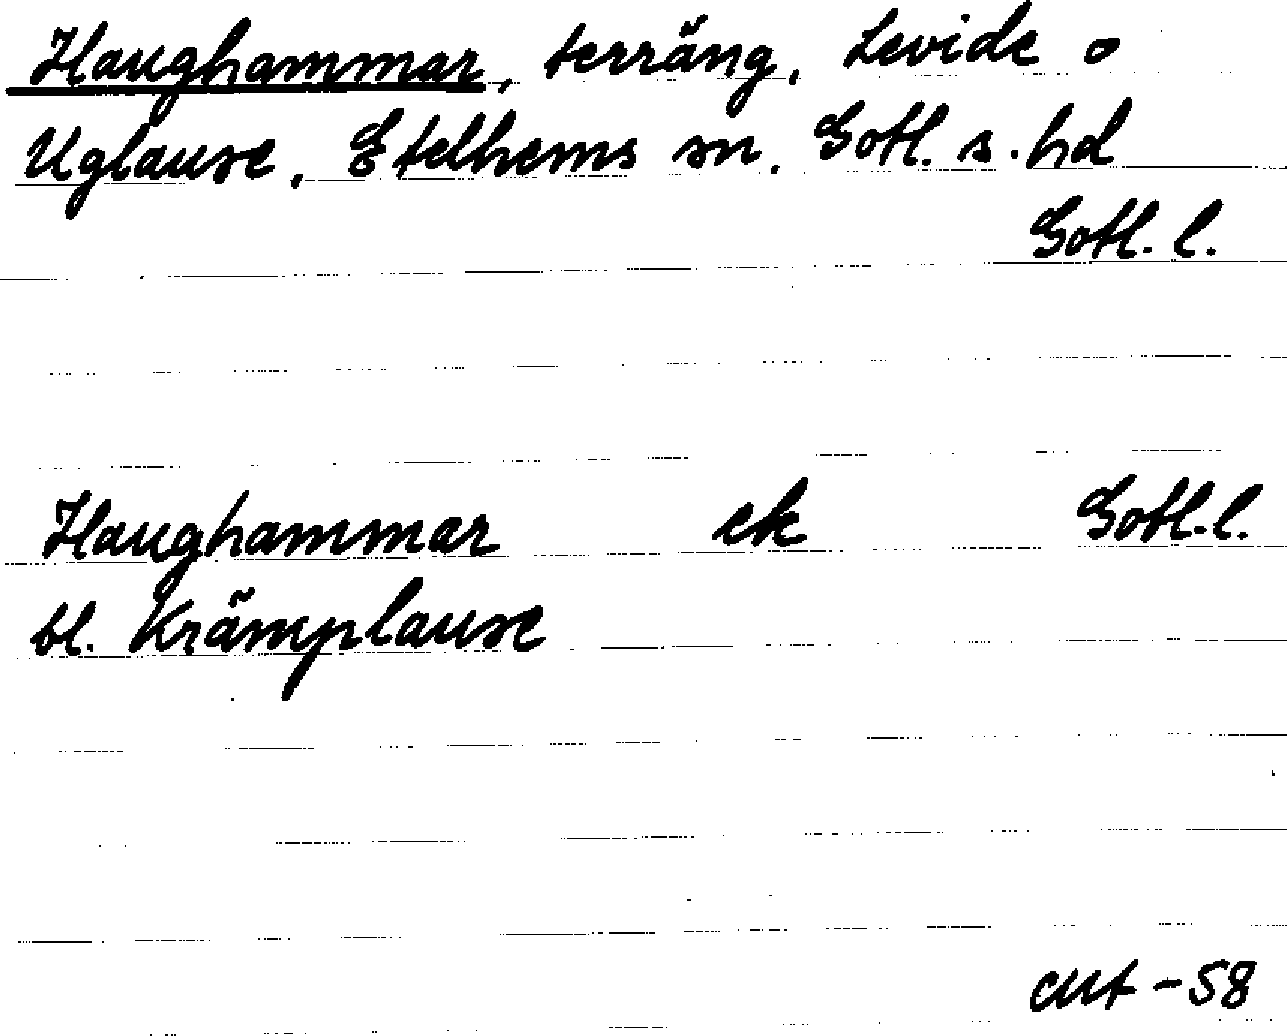 Haughammar, terräng, Levide o
Uglause, Etelhems sn. Gotl. s. hd
Gotl. l.
Haughammar ek Gotl. l.
bl. Krämplause
cut -58